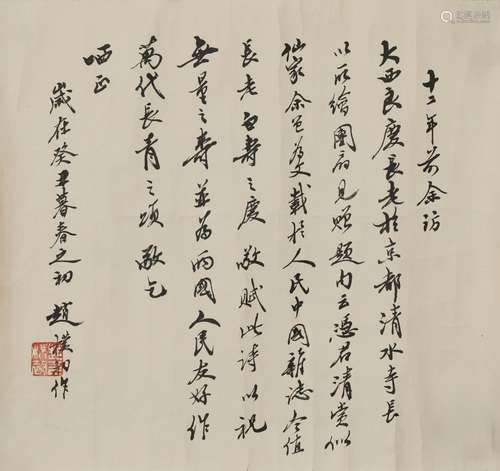 十二年前余訪
大西良慶長老於京都清水寺長
以所繪團扇見贈題內云憑君清賞似
仙家余已為文載於人民中國雜誌今值
長老白壽之慶敬賦此詩以祝
無量之壽並為兩國人民友好作
萬代長青之頌敬乞
哂正
歲在癸丑暮春之初 趙樸初作